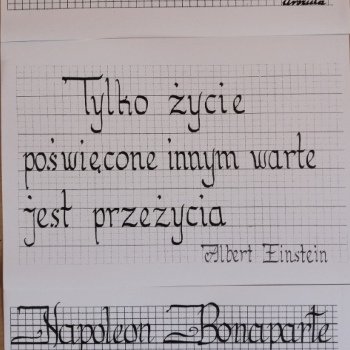 Tylko życie
poświęcone innym warte
jest przeżycia
Albert Einstein
Napoleon Bonaparte